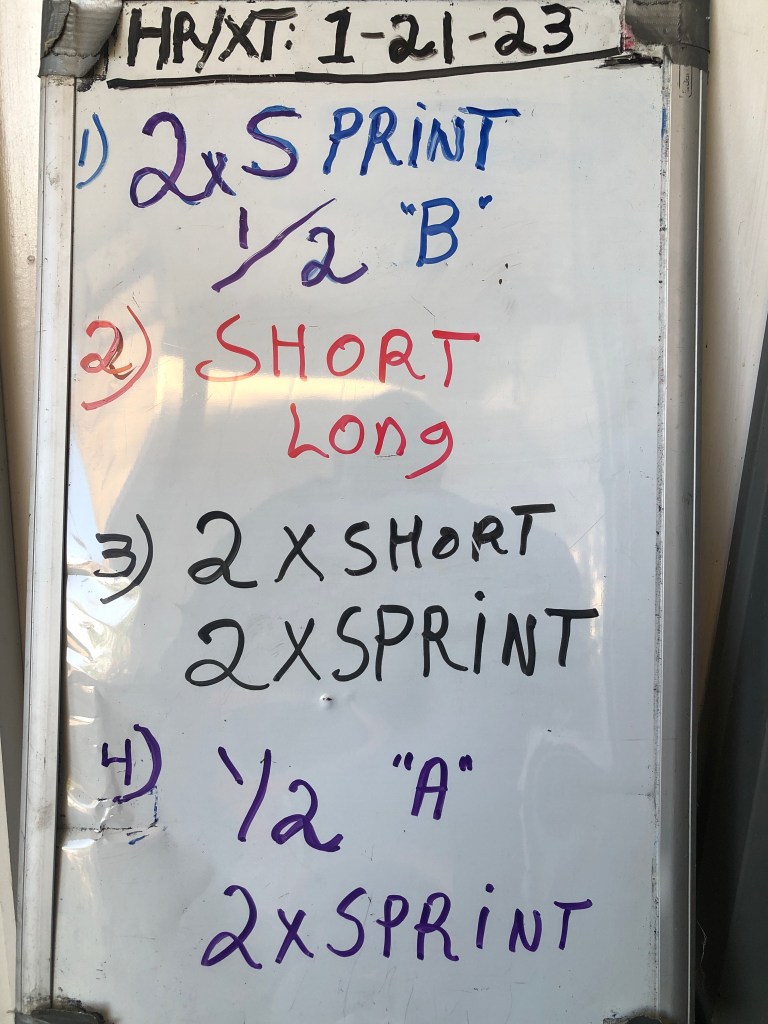 HR/XT: 1-21-23
1) 2xSPRINT
1/2 "B"
2) SHORT
Long
3) 2XSHORT
2XSPRINT
4) 1/2 "A"
2XSPRINT